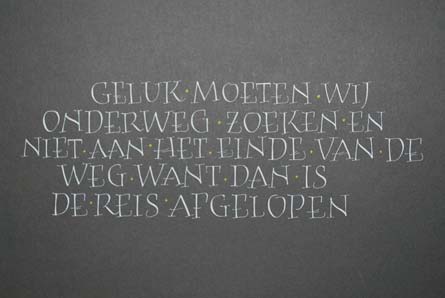 GELUK·MOETEN·WIJ
ONDERWEG·ZOEKEN·EN
NIET·AAN·HET·EINDE·VAN·DE
WEG·WANT·DAN·IS
DE·REIS·AFGELOPEN